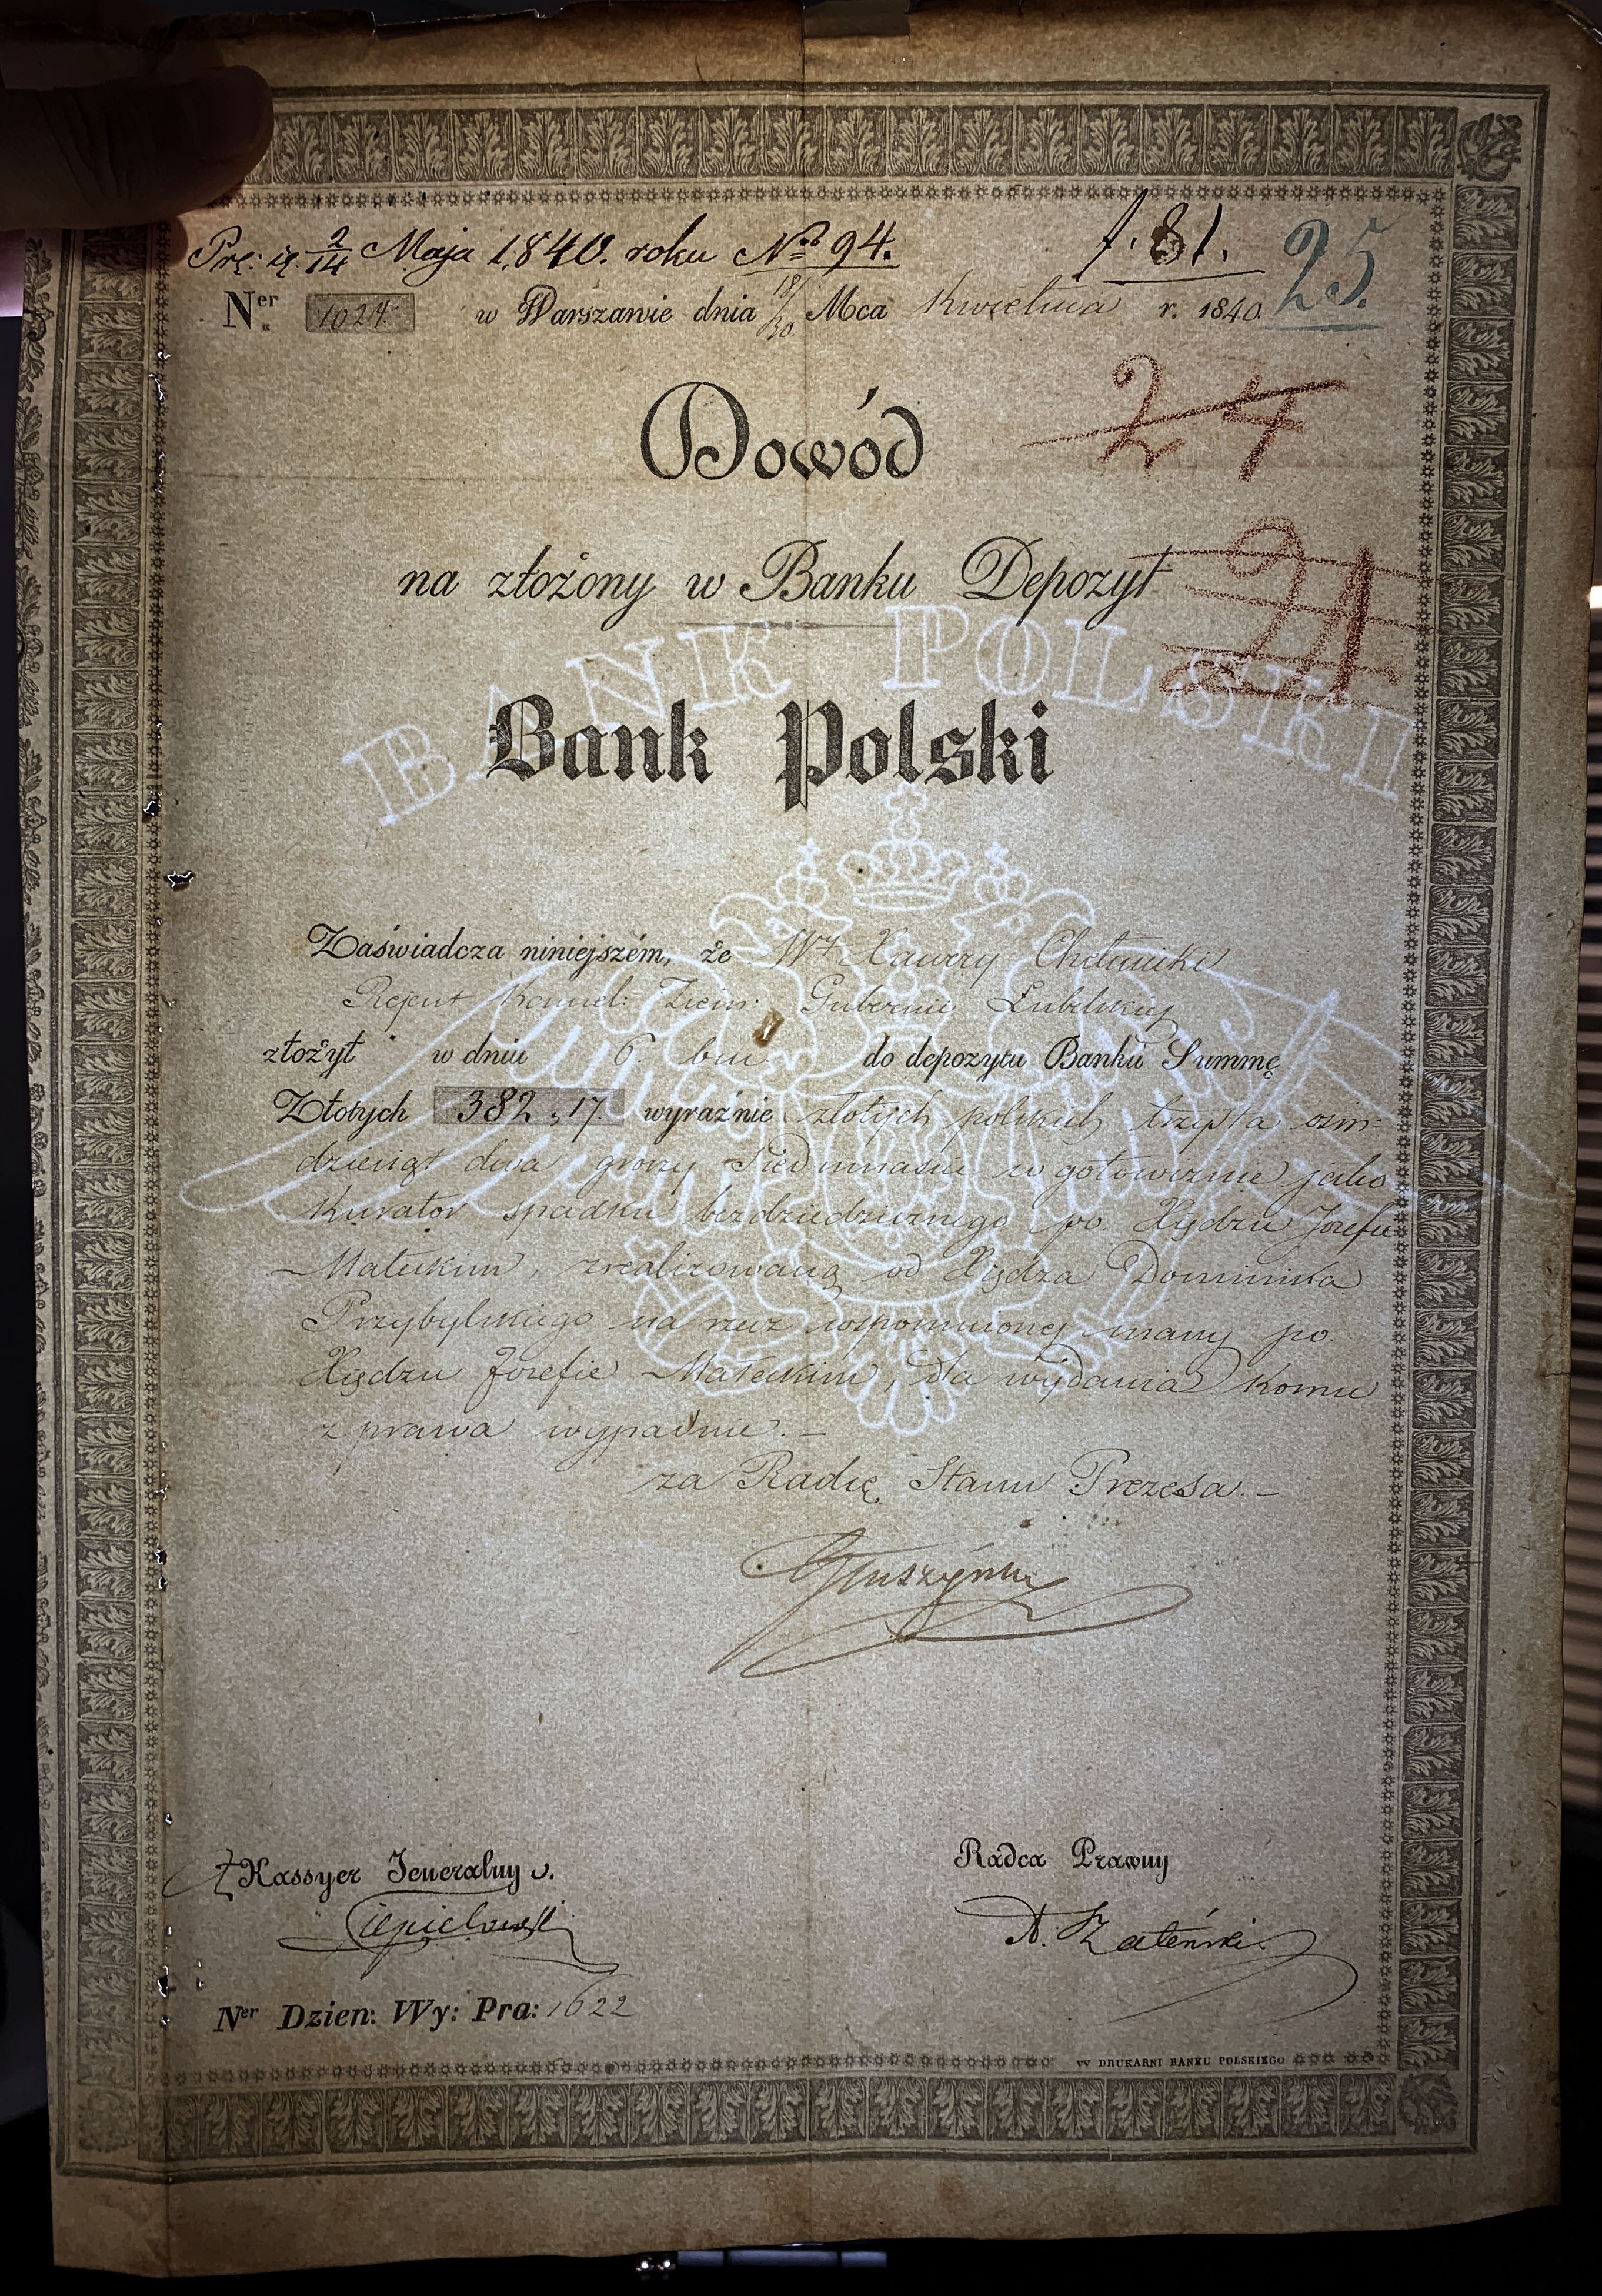 Prz: d. 2/14 Maja 1840. roku No 94. f. 81. 25.
Ner 1024 w Warszawie dnia 18/30 Mca Kwietnia r. 1840
24
Dowód
na złożony w Banku Depozyt
21
BANK POLSKI
Bank Polski
Zaświadcza niniejszém, że Wy Xawery Chełmicki
Rejent Kancel: Ziem: Gubernii Lubelskiej
złożył w dniu 6 bm do depozytu Banku Summę
Złotych 382,17 wyraźnie złotych polskich trzysta ośm-
dziesiąt dwa groszy siedmnaście w gotowiznie jako
Kurator spadku bezdziedzicznego po Xiędzu Józefie
Małeckim, zrealizowaną od Xiędza Dominika
Przybylskiego na rzecz wspomnionej massy po
Xiędzu Józefie Małeckim, dla wydania komu
z prawa wypadnie. —
za Radcę Stanu Prezesa. —
Głuszyński
Kassyer Jeneralny Radca Prawny
Ner Dzien: Wy: Pra: 1622
W DRUKARNI BANKU POLSKIEGO